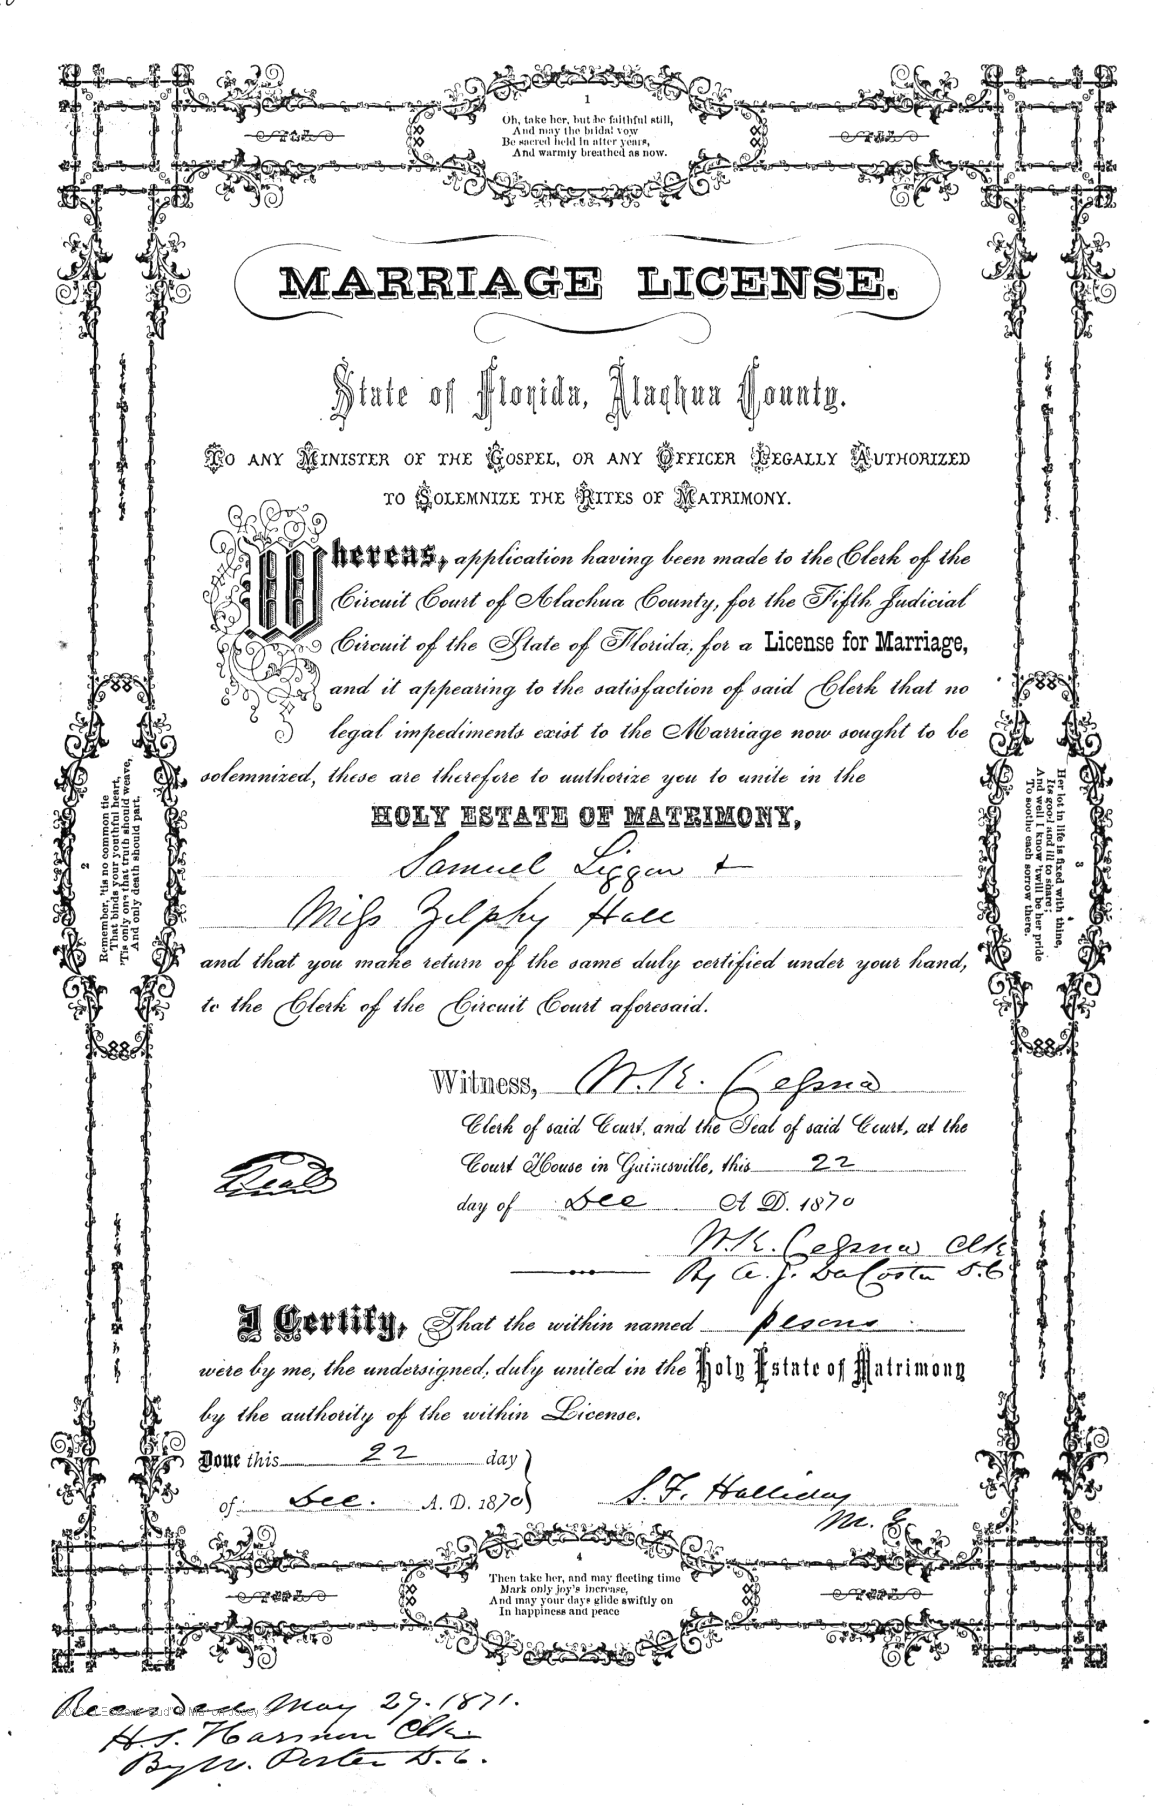 1
Oh, take her, but be faithful still,
And may the bridal vow
Be sacred held in after years,
And warmly breathed as now.
MARRIAGE LICENSE.
State of Florida, Alachua County.
TO ANY MINISTER OF THE GOSPEL, OR ANY OFFICER LEGALLY AUTHORIZED
TO SOLEMNIZE THE RITES OF MATRIMONY.
Whereas, application having been made to the Clerk of the
Circuit Court of Alachua County, for the Fifth Judicial
Circuit of the State of Florida, for a License for Marriage,
and it appearing to the satisfaction of said Clerk that no
legal impediments exist to the Marriage now sought to be
solemnized, these are therefore to authorize you to unite in the
HOLY ESTATE OF MATRIMONY,
Samuel Liggon +
Miss Zilphy Hall
and that you make return of the same duly certified under your hand,
to the Clerk of the Circuit Court aforesaid.
Witness, W. K. Cessna
Clerk of said Court, and the Seal of said Court, at the
Court House in Gainesville, this 22
day of Dec A. D. 1870
Seal
W. K. Cessna Clk
By A. J. DaCosta D.C
I Certify, That the within named pesons
were by me, the undersigned, duly united in the Holy Estate of Matrimony
by the authority of the within License.
Done this 22 day
of Dec. A. D. 1870
S. F. Halliday
2
Remember, 'tis no common tie
That binds your youthful heart,
'Tis only one that truth should weave,
And only death should part.
3
Her lot in life is fixed with thine,
Its good and ill to share;
And well I know 'twill be her pride
To soothe each sorrow there.
4
Then take her, and may fleeting time
Mark only joy's increase,
And may your days glide swiftly on
In happiness and peace
Recorded May 29. 1871.
H. S. Harmon Clk
By W. Porter D. C.